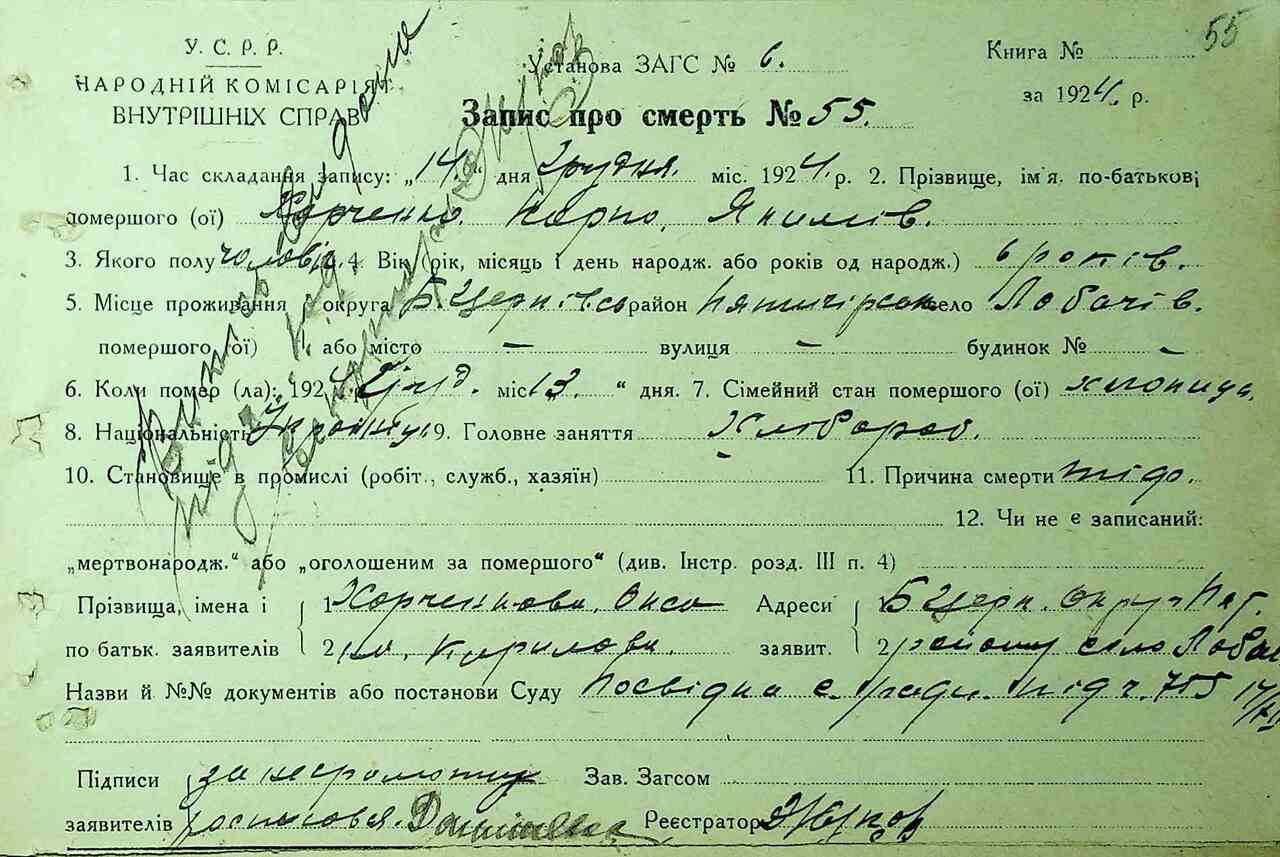 55
У. С. Р. Р.
НАРОДНІЙ КОМІСАРІЯТ
ВНУТРІШНІХ СПРАВ
Установа ЗАГС № 6.
Книга №
за 1924. р.
Запис про смерть № 55.
1. Час складання запису: „14“ дня Грудня міс. 1924. р. 2. Прізвище, ім'я. по-батькові
помершого (ої) Харченко Карпо, Якимів.
3. Якого полу чоловіч. 4. Вік (рік, місяць і день народж. або років од народж.) 6 років.
5. Місце проживання округа Б Церківсь район Пятигірськ село Лобачів.
помершого (ої) або місто – вулиця – будинок № –
6. Коли помер (ла): 1924 р. Груд. міс 13. “ дня. 7. Сімейний стан помершого (ої)
8. Національність Україн 9. Головне заняття Хлібороб.
10. Становище в промислі (робіт., служб., хазяїн) – 11. Причина смерти тіф.
12. Чи не є записаний:
„мертвонародж.“ або „оголошеним за помершого“ (див. Інстр. розд. III п. 4)
Прізвища, імена і 1 Харченкова, Окса Адреси Б Церк. округ Пят.
по батьк. заявителів 2 Кирилова. заявит. 2 району село Лобач
Назви й №№ документів або постанови Суду Посвідка с. ради під ч. 755
Підписи за неграмотну Зав. Загсом
заявителів росписався. Реєстратор